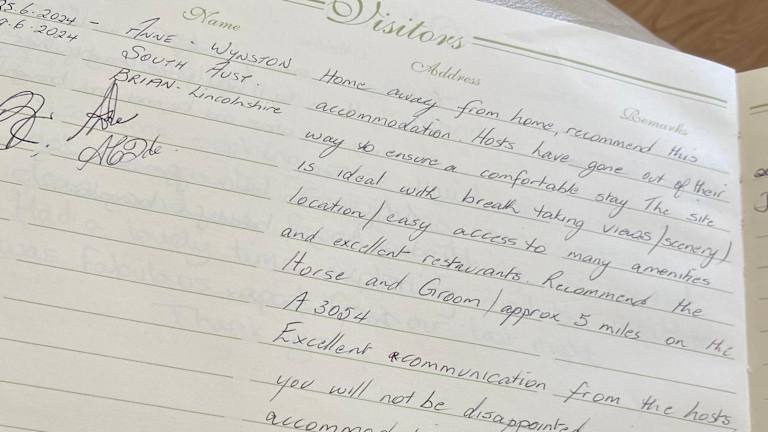 Visitors
Name
Address
Remarks
5.6.2024 - ANNE. WYNSTON
.6.2024 SOUTH AUST.
BRIAN. Lincolnshire
Home away from home, recommend this
accommodation. Hosts have gone out of their
way to ensure a comfortable stay The site
is ideal with breath taking views/scenery/
location/easy access to many amenities
and excellent restaurants. Recommend the
Horse and Groom/approx 5 miles on the
A 3054
Excellent communication from the hosts
you will not be disappointed